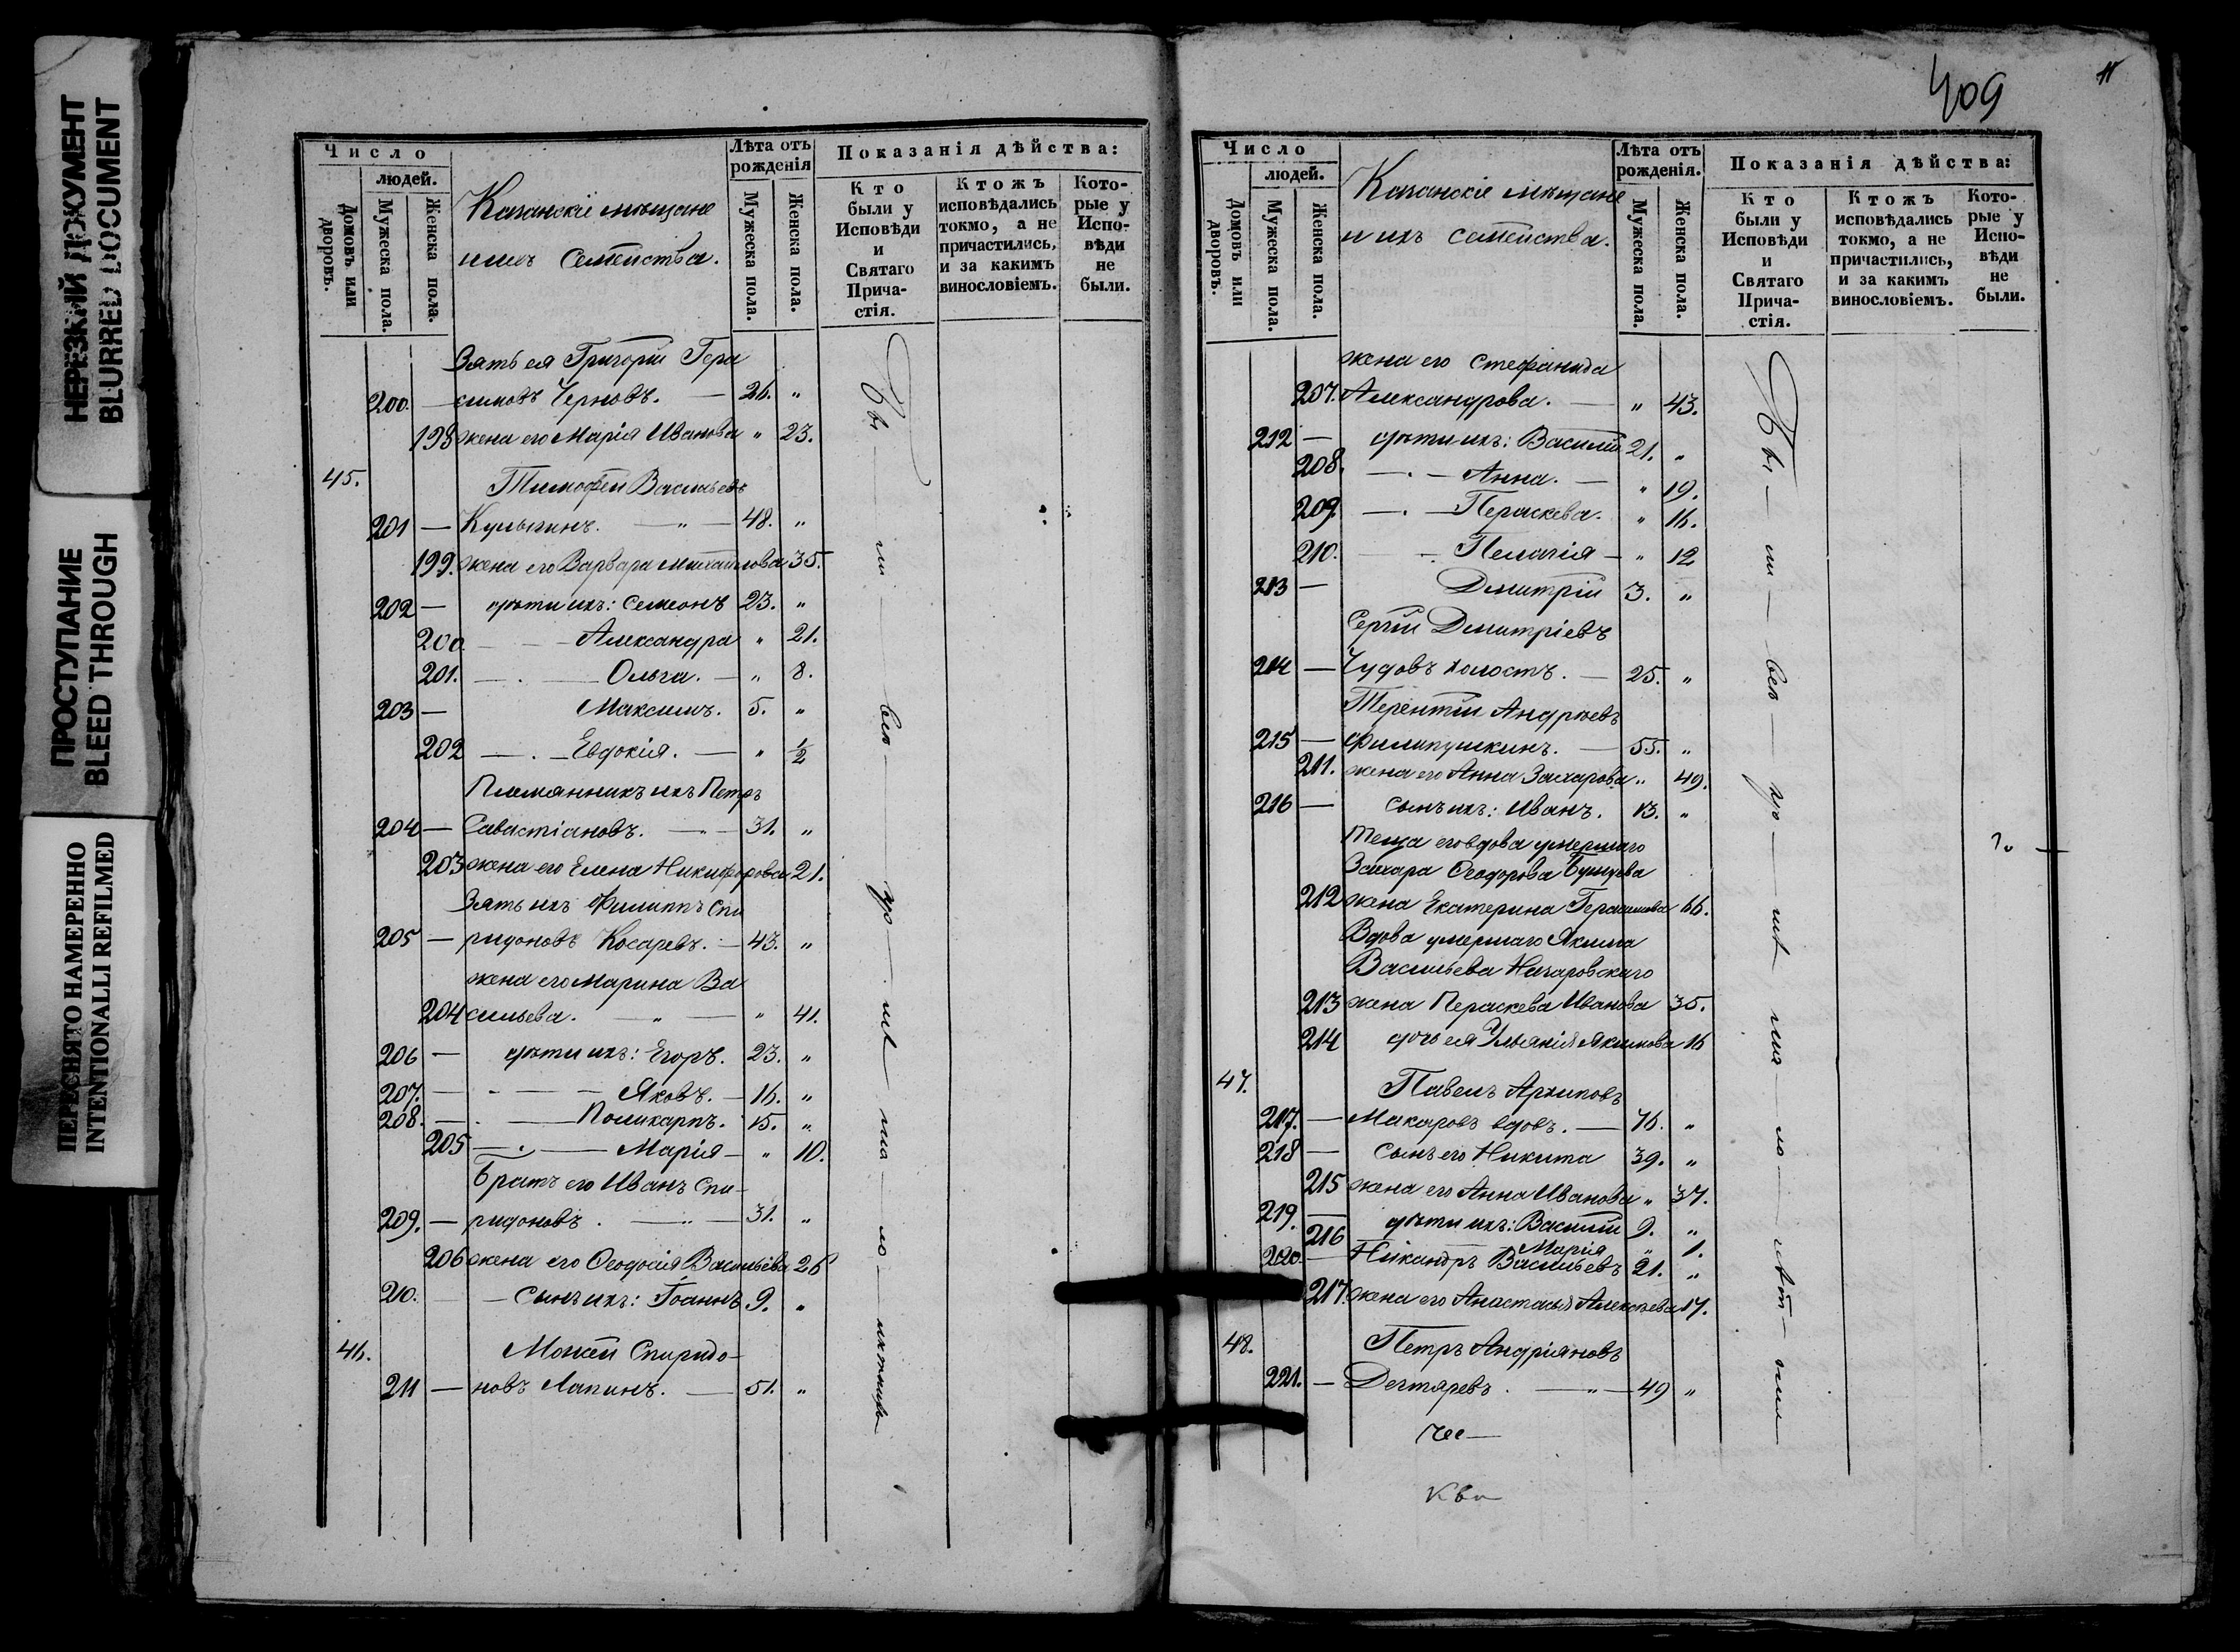 НЕРЕЗКИЙ ДОКУМЕНТ
BLURRED DOCUMENT
ПРОСТУПАНИЕ
BLEED THROUGH
ПЕРЕСНЯТО НАМЕРЕННО
INTENTIONALLI REFILMED
Число
людей.
Домовъ или дворовъ.
Мужеска пола.
Женска пола.
Казанскіе мѣщане
и ихъ семейства.
Лѣта отъ рожденія
Мужеска пола.
Женска пола.
Показанія дѣйства:
Кто были у Исповѣди и Святаго Прича-стія.
Ктожъ исповѣдались токмо, а не причастились, и за какимъ винословіемъ.
Кото-рые у Испо-вѣди не были.
Зять ея Григорій Гера
200. — симовъ Черновъ. — 26. „
198 жена его Марія Иванова „ 23.
45. Тимофей Васильевъ
201 — Кулыгинъ. — „ — 48. „
199. жена его Варвара Михайлова 35.
202 — дѣти ихъ: Семеонъ 23. „
200 — — Александра „ 21.
201. — . — Ольга. — „ 8.
203 — Максимъ. 5. „
202 — . — Евдокія. — „ 1/2
Племянникъ ихъ Петръ
204 — Савастіановъ. — „ — 31. „
203 жена его Елена Никифорова 21.
Зять ихъ Филиппъ Спи
205 — ридоновъ Косаревъ. — 43. „
жена его Марина Ва
204 сильева. — „ — „ 41.
206 — дѣти ихъ: Егоръ. 23. „
207. — — — Яковъ. — 16. „
208. — . — Поликарпъ. 15. „
205 — . — Марія — „ 10.
Братъ его Иванъ Спи-
209. — ридоновъ. — „ — 31. „
206 жена его Ѳеодосія Васильева 26
210. — сынъ ихъ: Іоаннъ 9. „
46. Мокей Спиридо-
211 — новъ Лапинъ. — 51. „
409
11
Число
людей.
Домовъ или дворовъ.
Мужеска пола.
Женска пола.
Казанскіе мѣщане
и ихъ семейства.
Лѣта отъ рожденія.
Мужеска пола.
Женска пола.
Показанія дѣйства:
Кто были у Исповѣди и Святаго Прича-стія.
Ктожъ исповѣдались токмо, а не причастились, и за какимъ винословіемъ.
Кото-рые у Испо-вѣди не были.
жена его Стефанида
207. Александрова. — „ 43.
212 — дѣти ихъ: Василій 21. „
208. — . — Анна. — „ 19.
209 — . — Пераскева. „ 16.
210. — . Пелагія — „ 12
213 — Димитрій 3. „
Сергій Димитріевъ
214 — Чудовъ холостъ. — 25. „
Терентій Андреевъ
215 — Филипушкинъ. — 55. „
211. жена его Анна Захарова „ 49.
216 — сынъ ихъ: Иванъ. 13. „
теща его вдова умершаго
Захара Ѳеодорова
212 жена Екатерина Герасимова 66.
Вдова умершаго Якима
Васильева
213 жена Пераскева Иванова 35.
214 дочь ея Ульянія Якимова 16
47. Павелъ Архиповъ
217. — Макаровъ вдовъ. — 76. „
218 — сынъ его Никита 39. „
215 жена его Анна Иванова „ 37.
219. — дѣти ихъ: Василій 9. „
216 Марія „ 1.
220 — Никандръ Васильевъ 21. „
217. жена его Анастасія Алексѣева 17.
48. Петръ Андріяновъ
221. — Дегтяревъ. — „ — 49 „